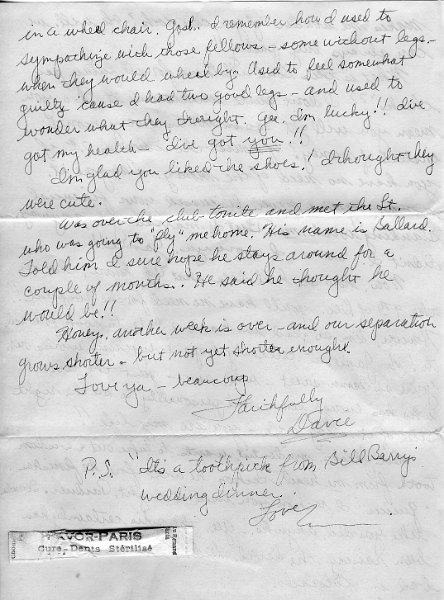 in a wheel chair. Gosh. I remember how I used to
sympathize with those fellows - some without legs -
when they would wheel by. Used to feel somewhat
guilty 'cause I had two good legs - and used to
wonder what they thought. Gee, I'm lucky!! I've
got my health - I've got you!!
I'm glad you liked the shoes! I thought they
were cute.
Was over the club tonite and met the Lt.
who was going to "fly" me home. His name is Ballard.
Told him I sure hope he stays around for a
couple of months. He said he thought he
would be!!
Honey, another week is over - and our separation
grows shorter - but not yet shorter enough.
Love ya - beaucoup
Faithfully
Dave
P.S. "It's a toothpick from Bill Barry's
wedding dinner.
Love
VOR-PARIS
Cure-Dents Stérilisé